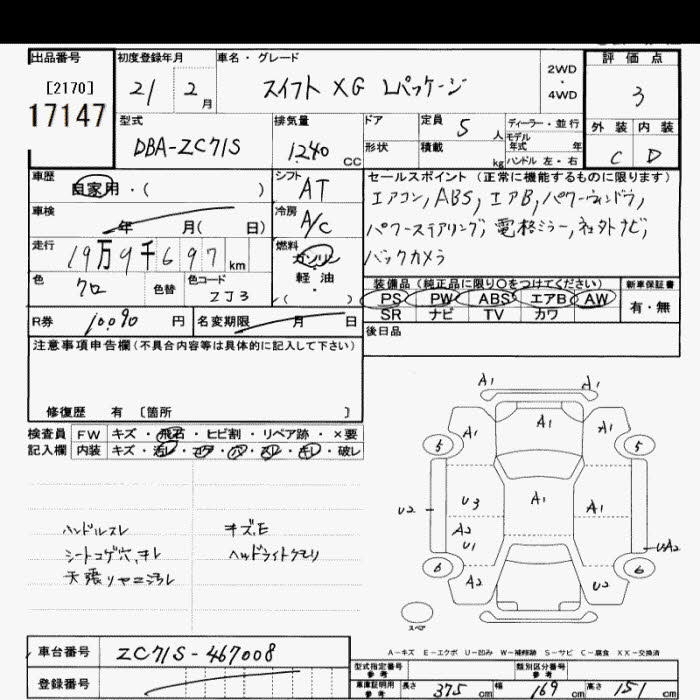 出品番号
[2170]
17147
初度登録年月
21 2 月
車名・グレード
スイフト XG Lパッケージ
2WD
・
4WD
評価点
3
外装 内装
C D
型式
DBA-ZC71S
排気量
1240 CC
ドア
定員 5 人
形状
積載 kg
ディーラー・並行
モデル
年式 年
ハンドル 左・右
車歴
自家用・( )
シフト
AT
セールスポイント (正常に機能するものに限ります)
エアコン, ABS, エアB, パワーウィンドウ,
パワーステアリング, 電格ミラー, 社外ナビ,
バックカメラ
車検
年 月( 日)
冷房
A/C
走行
19万9千697 km
燃料
ガソリン
軽・油
・( )
色
クロ
色替
色コード
ZJ3
装備品 (純正品に限り○をつけてください)
PS PW ABS エアB AW
SR ナビ TV カワ
新車保証書
有・無
R券 10,090 円
名変期限 月 日
後日品
注意事項申告欄(不具合内容等は具体的に記入して下さい)
修復歴 有 [箇所 ]
検査員 FW キズ・飛石・ヒビ割・リペア跡・×要
記入欄 内装 キズ・汚レ・コゲ・穴・スレ・キレ・破レ
ハンドルスレ
シートコゲ穴, キレ
天張リヤニヨゴレ
キズ, E
ヘッドライトクモリ
A1 A1
A1 A1 A1
5 5
U2 U3 A1 A1
A2
U1 UA2
6 6
A2 U2
スペア
A-キズ E-エクボ U-凹み W-補修跡 S-サビ C-腐食 XX-交換済
車台番号 ZC71S-467008
登録番号
型式指定番号
参考
類別区分番号
参考
車庫証明用
参考
長さ 375 cm 幅 169 cm 高さ 151 cm